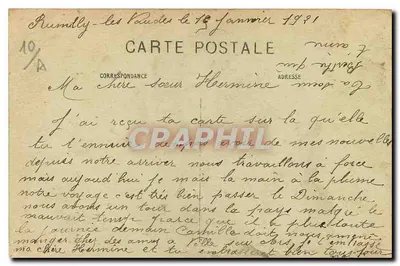 Rumilly-les Vaudes le 13 Janvier 1921
10/A
CARTE POSTALE
CORRESPONDANCE
ADRESSE
Ma chère sœur Hermine
J'ai reçu ta carte sur la qu'elle
tu t'ennui de mes nouvelles
depuis notre arriver nous travaillons à force
mais aujourd'hui je mais la main à la plume
notre voyage c'est très bien passer le Dimanche
nous avons un tour dans le pays malgré le
mauvait temps parce que il a plus toute
la journée demain Camille doit nous
manger chez des amis a
ma chère Hermine et tu
CARTPHIL